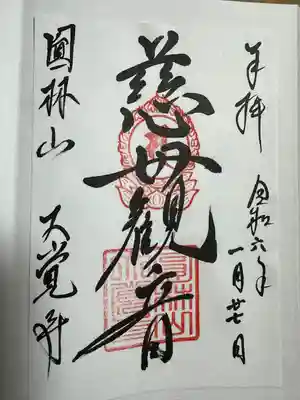 奉拝
令和六年
一月廿七日
慈母観音
圓林山
大覚寺